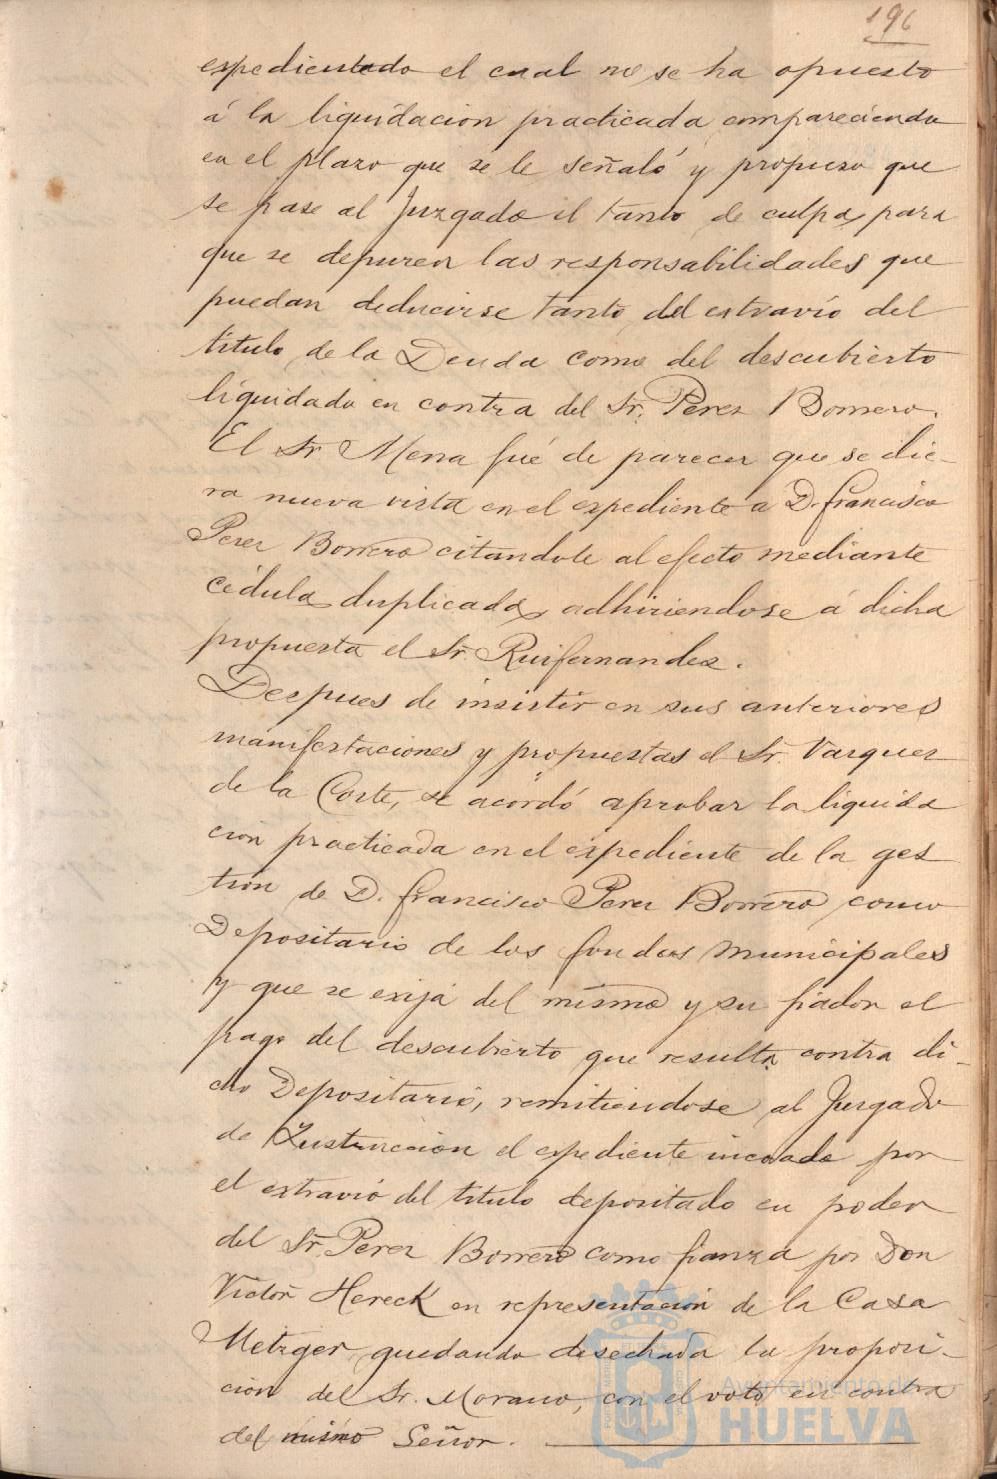 196
expedientado el cual no se ha opuesto
á la liquidacion practicada compareciendo
en el plazo que se le señaló y propuso que
se pase al Juzgado el tanto de culpa para
que se depuren las responsabilidades que
puedan deducirse tanto del extravío del
titulo de la Deuda como del descubierto
liquidado en contra del Sr. Perez Borrero.
El Sr Mena fué de parecer que se die-
ra nueva vista en el expediente a D. Francisco
Perez Borrero citandole al efecto mediante
cédula duplicada, adhiriendose á dicha
propuesta el Sr. Ruifernandez.
Despues de insistir en sus anteriores
manifestaciones y propuestas el Sr. Vazquez
de la Corte, se acordó aprobar la liquida
cion practicada en el expediente de la ges
tion de D. Francisco Perez Borrero como
Depositario de los fondos municipales
y que se exija del mismo y su fiador el
pago del descubierto que resulta contra di-
cho Depositario, remitiendose al Juzgado
de Instruccion el expediente incoado por
el extravio del titulo depositado en poder
del Sr. Perez Borrero como fianza por Don
Victor Hereck en representacion de la Casa
Metzger, quedando desechada la proposi-
cion del Sr. Morano, con el voto en contra
del mismo Señor.
Ayuntamiento de
HUELVA